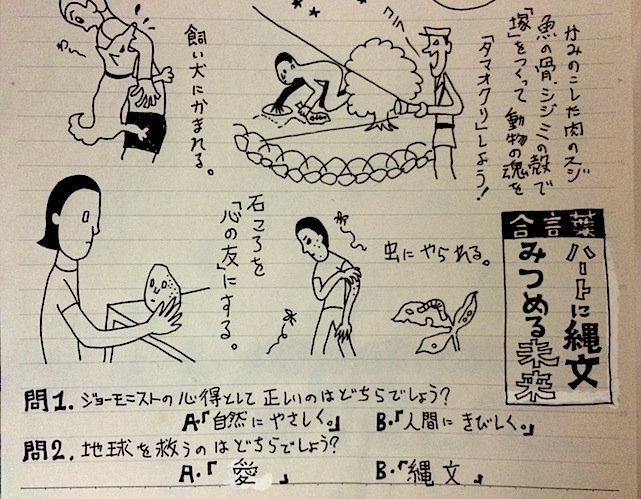 かみのこした肉のスジ
魚の骨、シジミの殻で
「塚」をつくって動物の魂を
「タマオクリ」しよう!
飼い犬にかまれる。
合言葉
ハートに縄文
みつめる未来
虫にやられる。
石ころを
「心の友」にする。
問1. ジョーモニストの心得として正しいのはどちらでしょう?
A.「自然にやさしく。」 B.「人間にきびしく。」
問2. 地球を救うのはどちらでしょう?
A.「愛」 B.「縄文」